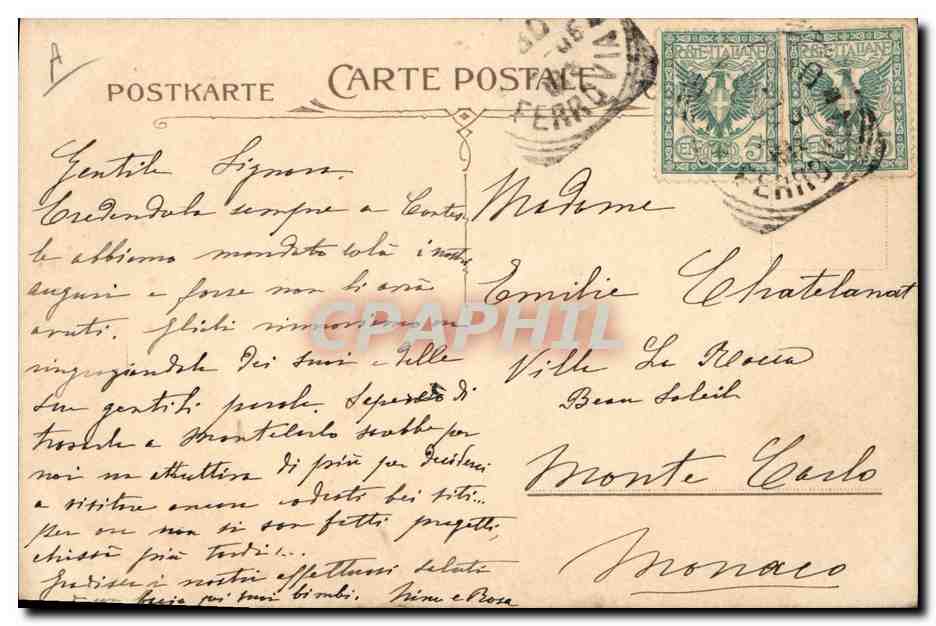 A
POSTKARTE
CARTE POSTALE
FERROVIA
POSTE ITALIANE
POSTE ITALIANE
5
5
FERROVIA
Gentile Signora
Credendola sempre a Cortes
le abbiamo mandato colà i nostri
auguri e forse non li avrà
avuti. Glieli rinnoviamo
ringraziandola dei suoi e delle
sue gentili parole. di
trovarla a Montecarlo sarebbe per
noi un attrattiva di più per deciderci
a visitare ancora codesti bei siti...
per ora non si son fatti progetti,
chissà più tardi!...
Gradisca i nostri affettuosi saluti
un bacio pei suoi bimbi. Nino e Rosa
Madame
Emilie Chatelanat
Villa La Rocca
Beau Soleil
Monte Carlo
Monaco
CPAPHIL